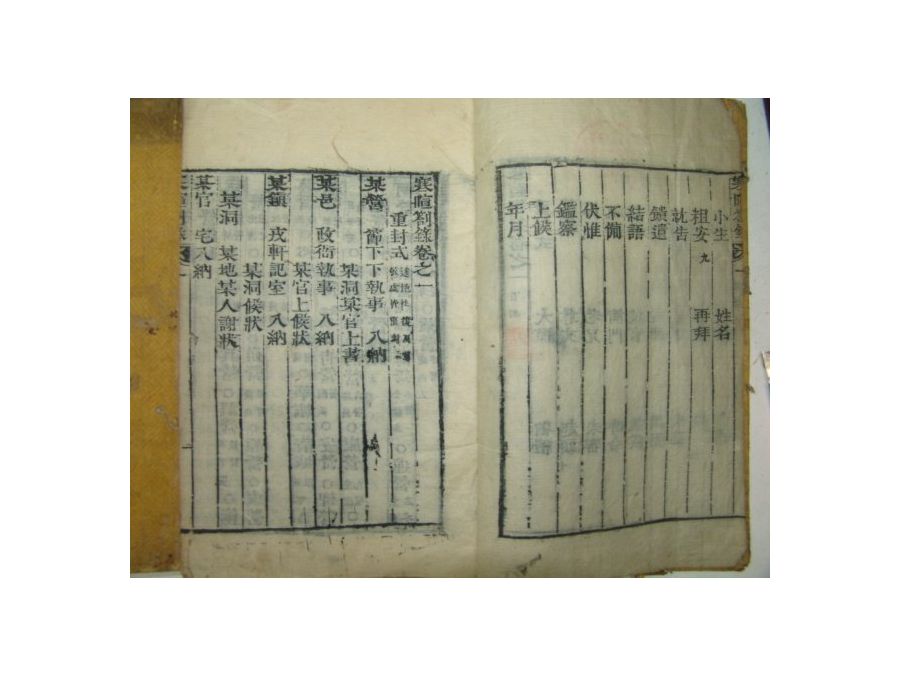 小生 姓名
祖安 九 再拜
就告
餽遺
結語
不備
伏惟
鑑察
上候
年月
寒暄劄錄卷之一
重封式
某營 節下下執事 入納
某洞某官上書
某邑 政衙執事 入納
某官上候狀
某鎭 戎軒記室 入納
某洞候狀
某洞 某地某人謝狀
某官 宅入納